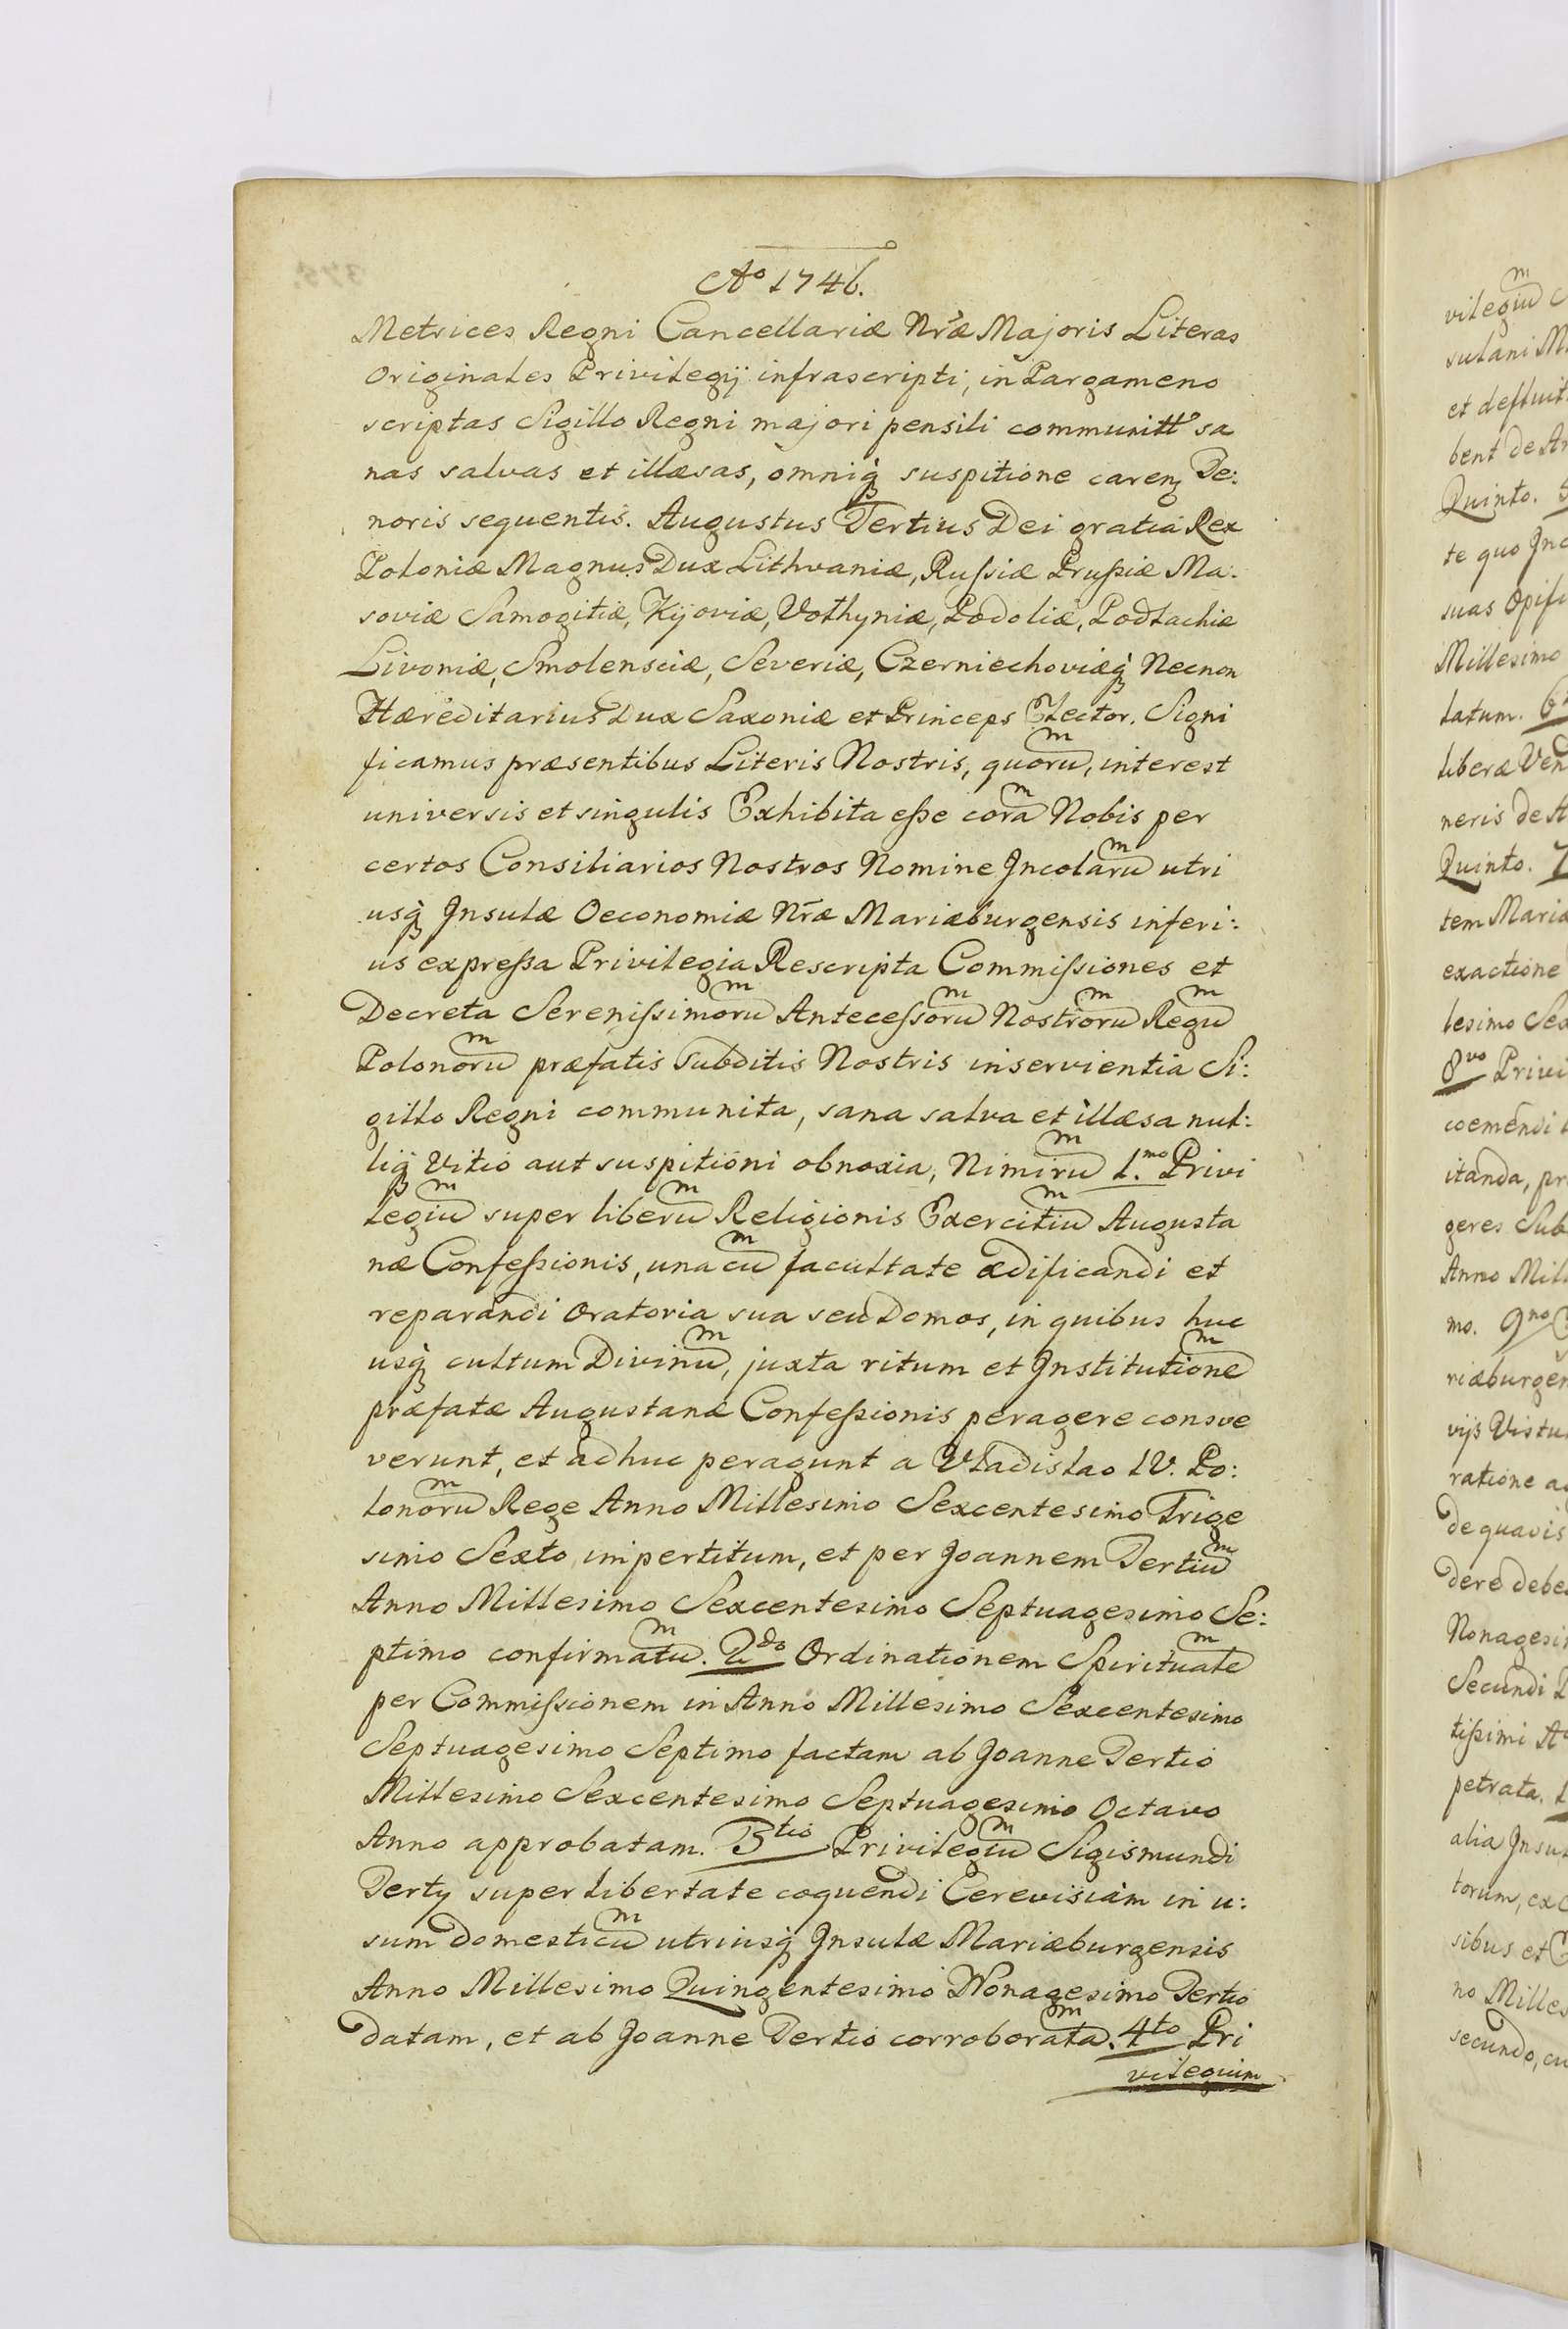 Ao 1746.
Metrices Regni Cancellariæ Nræ Majoris Literas
Originales Privilegij infrascripti, in Pargameno
scriptas Sigillo Regni majori pensili communitt sa
nas salvas et illæsas, omniq suspitione caren Te:
noris sequentis. Augustus Tertius Dei gratia Rex
Poloniæ Magnus Dux Lithvaniæ, Russiæ Prussiæ Ma:
soviæ Samogitiæ, Kijoviæ, Volhyniæ, Podoliæ, Podlachiæ
Livoniæ, Smolensciæ, Severiæ, Czerniechoviæq Necnon
Hæreditarius Dux Saxoniæ et Princeps Elector. Signi
ficamus præsentibus Literis Nostris, quorum, interest
universis et singulis Exhibita esse coram Nobis per
certos Consiliarios Nostros Nomine Incolarum utri
usq Insulæ Oeconomiæ Nræ Mariæburgensis inferi:
us expressa Privilegia Rescripta Commissiones et
Decreta Serenissimorum Antecessorum Nostrorum Regum
Polonorum præfatis Subditis Nostris inservientia Si:
gillo Regni communita, sana salva et illæsa nul:
liq Vitio aut suspitioni obnoxia, Nimirum 1.mo Privi
legium super liberum Religionis Exercitium Augusta
næ Confessionis, unacum facultate ædificandi et
reparandi Oratoria sua seu Domos, in quibus huc
usq cultum Divinum, juxta ritum et Institutionem
præfatæ Augustanæ Confessionis peragere consve
verunt, et adhuc peragunt a Vladislao IV. Po:
lonorum Rege Anno Millesimo Sexcentesimo Trige
simo Sexto impertitum, et per Joannem Tertium
Anno Millesimo Sexcentesimo Septuagesimo Se:
ptimo confirmatum. 2do Ordinationem Spiritualem
per Commissionem in Anno Millesimo Sexcentesimo
Septuagesimo Septimo factam ab Joanne Tertio
Millesimo Sexcentesimo Septuagesimo Octavo
Anno approbatam. 3tio Privilegium Sigismundi
Tertij super libertate coquendi Cerevisiam in u:
sum domesticum utriusq Insulæ Mariæburgensis
Anno Millesimo Quingentesimo Nonagesimo Tertio
datam, et ab Joanne Tertio corroboratam. 4to Pri
vilegium
vilegium
sulani
et defluit
bent de
Quinto.
te quo
suas Opifi
Millesimo
latum.
liberæ
neris de
Quinto.
tem
exactione
lesimo
8vo Privi
coemendi
itanda,
geres
Anno
mo. 9no
riæburgen
vijs
ratione
de quavis
dere
Nonagesi
Secundi
tissimi
petrata.
alia
torum,
sibus et
no Milles
secundo,